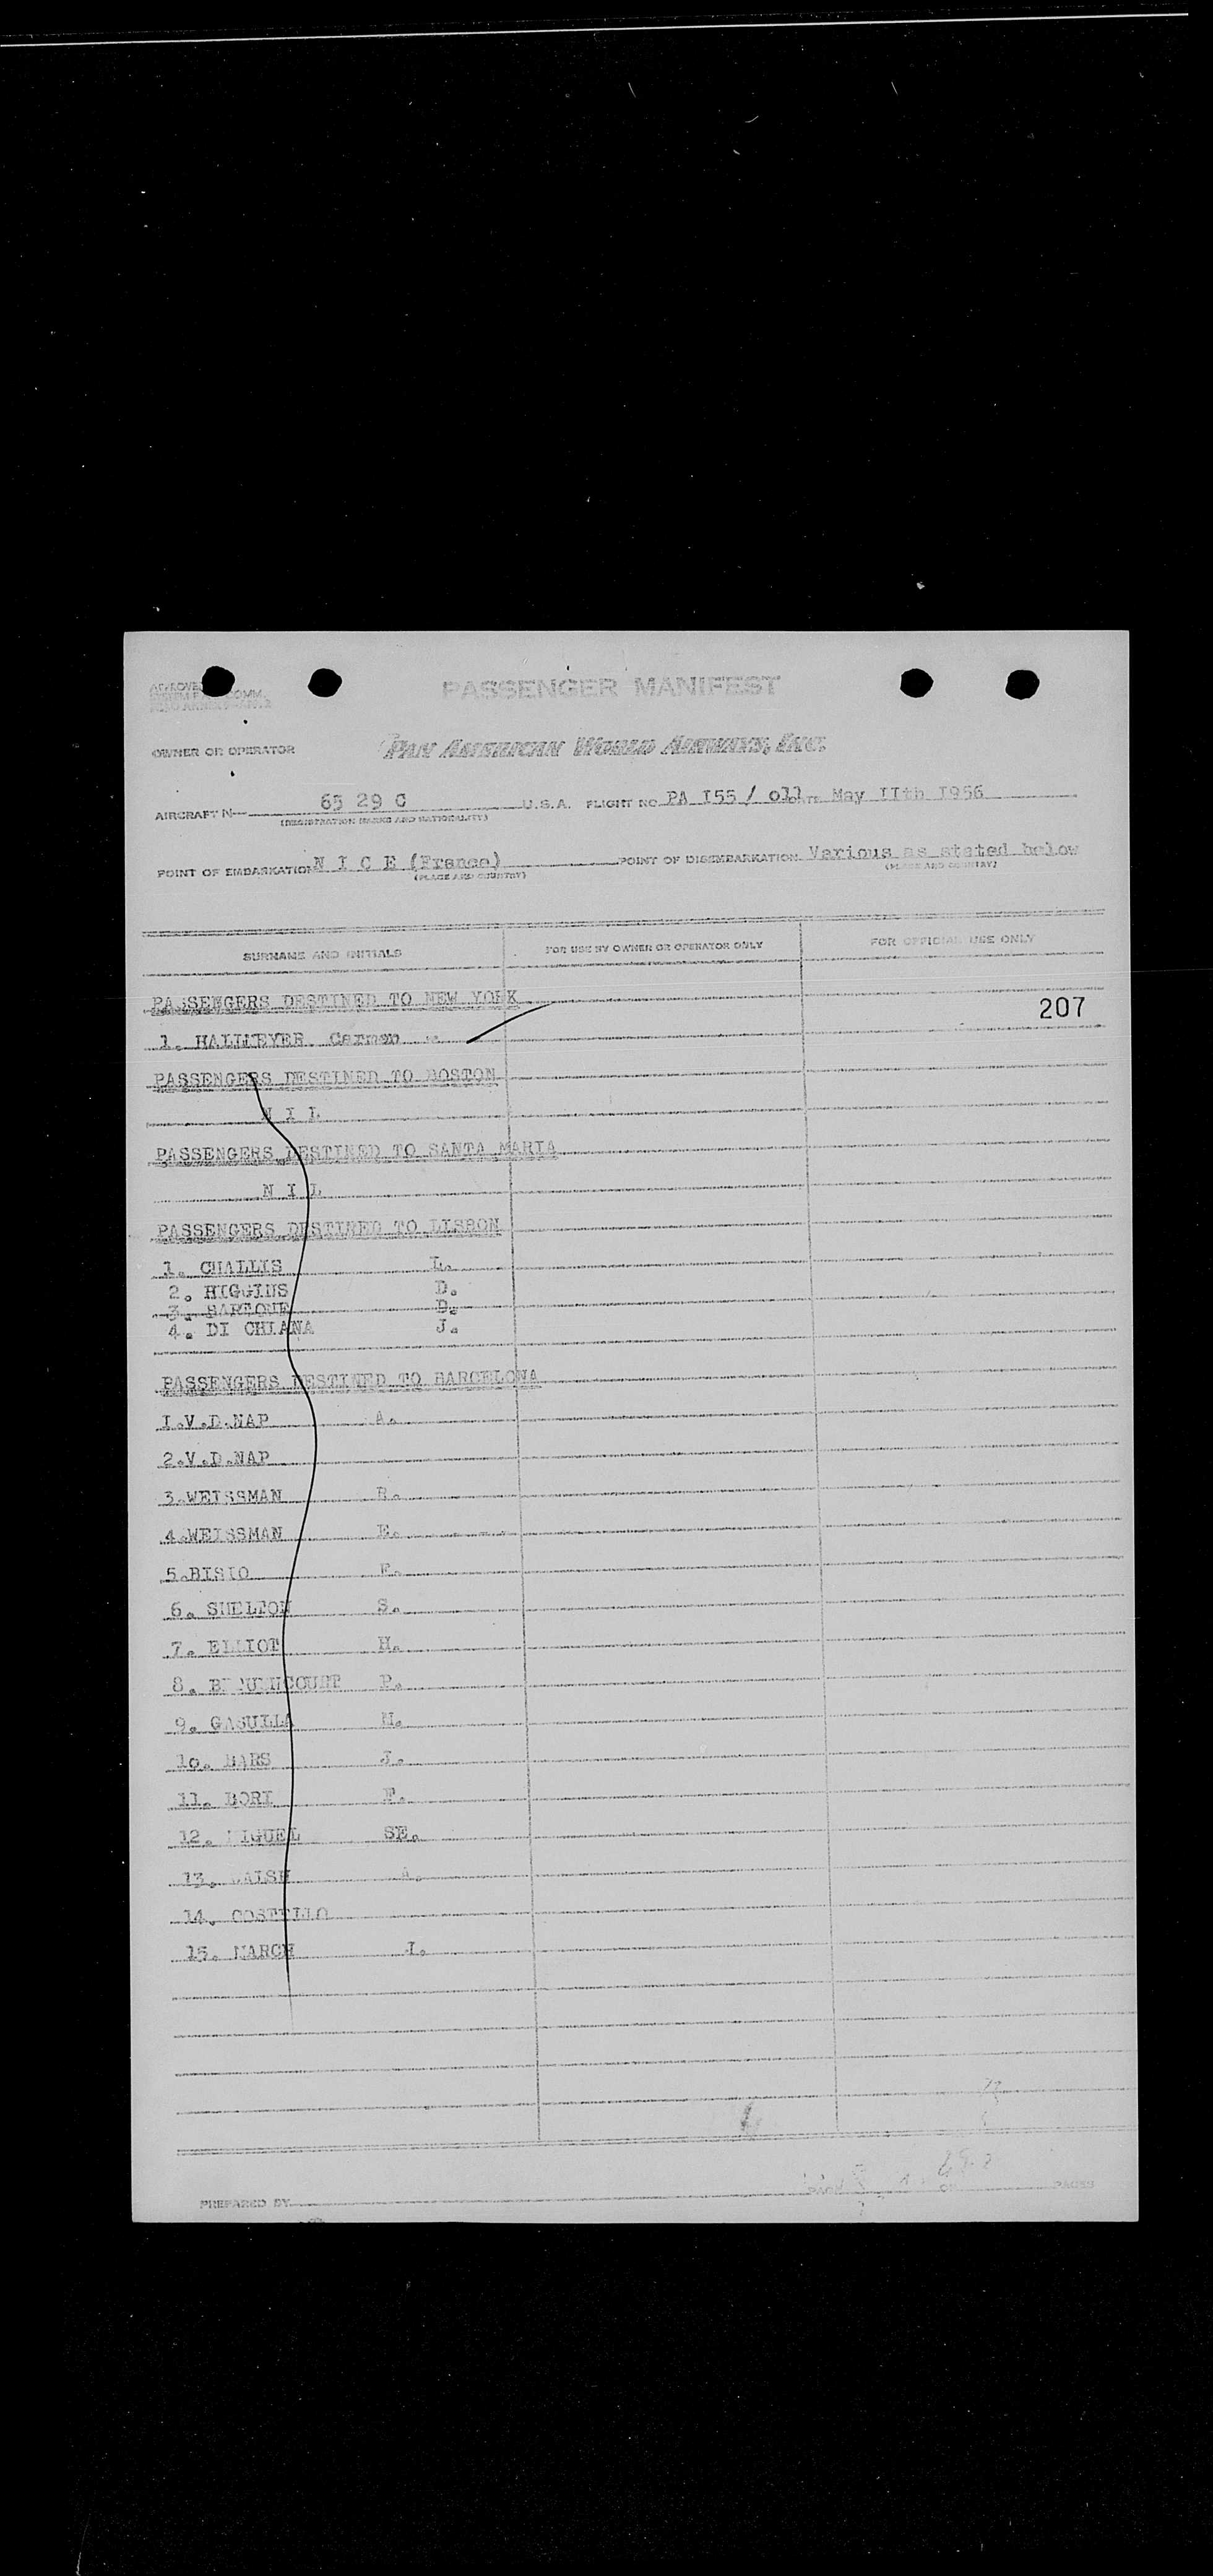 PASSENGER MANIFEST
OWNER OR OPERATOR PAN AMERICAN WORLD AIRWAYS, INC.
AIRCRAFT N 65 29 C U.S.A. FLIGHT NO. PA I55 / o11 DATE May IIth 1956
(REGISTRATION MARKS AND NATIONALITY)
POINT OF EMBARKATION N I C E (France) POINT OF DISEMBARKATION Various as stated below
(PLACE AND COUNTRY) (PLACE AND COUNTRY)
SURNAME AND INITIALS FOR USE BY OWNER OR OPERATOR ONLY FOR OFFICIAL USE ONLY
PASSENGERS DESTINED TO NEW YORK
207
1. Carmen
PASSENGERS DESTINED TO BOSTON
N I L
PASSENGERS DESTINED TO SANTA MARIA
N I L
PASSENGERS DESTINED TO LISBON
1. CHALLIS L.
2. HIGGINS D.
3. D.
4. DI CHIANA J.
PASSENGERS DESTINED TO BARCELONA
I.V.D.NAP A.
2.V.D.NAP
3.WEISSMAN R.
4.WEISSMAN E.
5.BISIO F.
6. SHELTON S.
7. ELLIOT H.
8. P.
9. GASULLA M.
1o. J.
11. BORI F.
12. MIGUEL SE.
13. WALSH A.
14. COSTELLO
15. MARCH J.
PREPARED BY PAGES